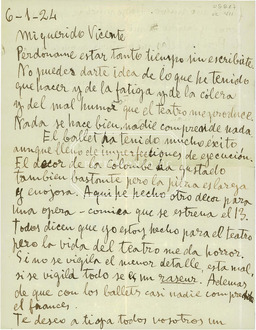 6-1-24
Mi querido Vicente
Perdoname estar tanto tiempo sin escribirte.
No puedes darte idea de lo que he tenido
que hacer y de la fatiga y de la cólera
y del mal humor que el teatro me produce.
Nada se hace bien, nadie comprende nada
El ballet ha tenido mucho exito
aunque lleno de imperfecciones de ejecución.
El decor de la Colombe ha gustado
tambien bastante pero la pieza es larga
y enojosa. Aqui he hecho otro decor para
una opera-comica que se estrena el 13.
Todos dicen que yo estoy hecho para el teatro
pero la vida del teatro me da horror.
Si no se vigila el menor detalle, esta mal,
si se vigila todo se es un raseur. Ademas
de que con los ballets casi nadie comprende
el frances.
Te deseo a ti y a todos vosotros un